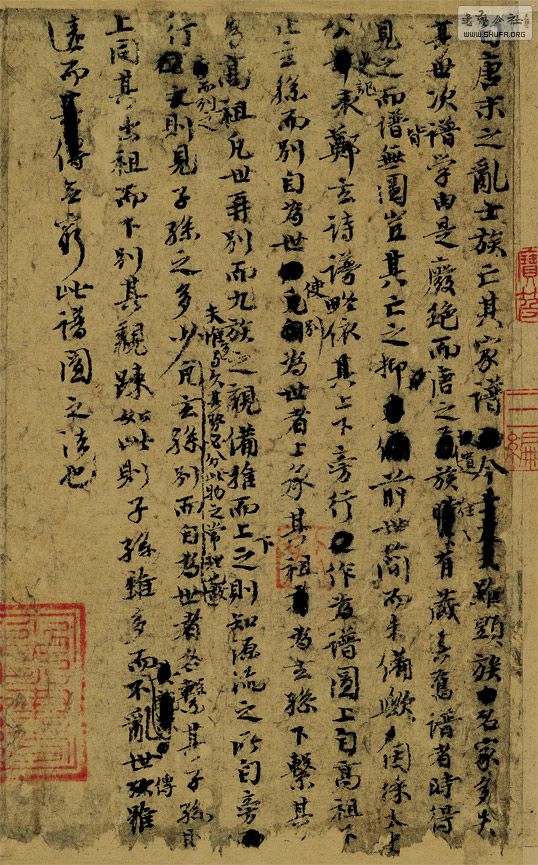 自唐末之亂士族亡其家譜今雖顯族名家多失
其世次譜学由是廢絕而唐之遺族往往有藏其舊譜者時得
見之而譜皆無圖豈其亡之抑前世簡而未備歟因採太史
公史記表鄭玄詩譜略依其上下旁行作為譜圖上自高祖下
止玄孫而別自為世使別為世者上承其祖為玄孫下繫其
為高祖凡世再別而九族之親備推而上下之則知源流之所自旁
行而列之則見子孫之多少夫惟多与久其勢必分此物之常理也凡玄孫別而自為世者各繫其子孫則
上同其出祖而下別其親疎如此則子孫雖多而不亂世傳雖
遠而無窮此譜圖之法也
WWW.SHUFA.ORG